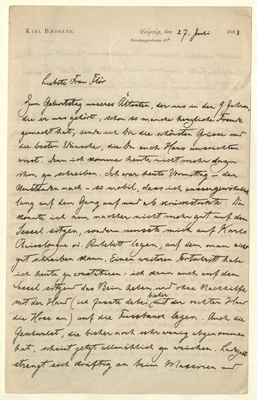 KARL BAEDEKER.
Leipzig, den 27. Juli 1883
Liebste Frau Flör
Zum Geburtstag unseres Ältesten, der uns in den 9 Jahren,
die er uns gehört, schon so manche herzliche Freude
gemacht hat, sende ich Dir die schönsten Grüsse und
die besten Wünsche, die Du auch Hans ausrichten
wirst. Denn ich komme heute nicht mehr dazu
ihm zu schreiben. Ich war heute Vormittag – den
nach – so mobil, dass ich aussergewöhnlich
lang auf dem Gang auf und ab
konnte ich dann nachher nicht mehr gut auf dem
Sessel sitzen, sondern musste mich auf Karls
Chaiselongue od. Ruhebett legen, auf dem man nicht
gut schreiben kann. Einen weitern Fortschritt habe
ich heute zu constatiren: ich kann auch auf dem
Sessel sitzend das Bein heben und ohne Nachhilfe
mit der Hand (ich fasste dabei bisher mit der rechten Hand
die Hose an) auf die Fussbank legen. Auch die
Geschwulst, die bisher noch sehr wenig abgenommen
hat, scheint jetzt allmählich zu weichen.
strengt sich kräftig an beim Massiren und